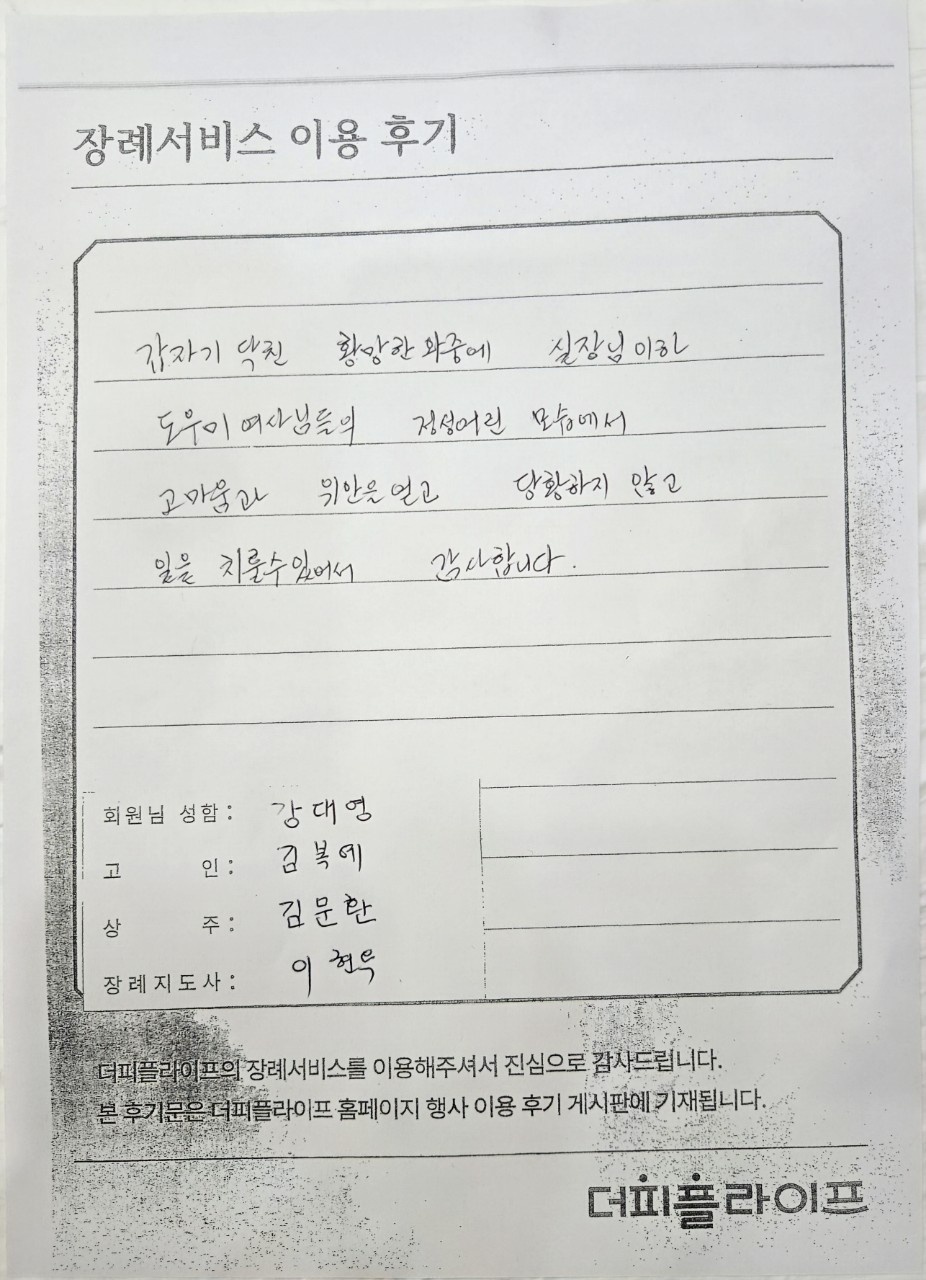 장례서비스 이용 후기
갑자기 닥친 황망한 와중에 실장님 이하
도우미 여사님들의 정성어린 모습에서
고마움과 위안을 얻고 당황하지 않고
일을 치룰수 있어서 감사합니다.
회원님 성함 : 강대영
고 인 : 김복예
상 주 : 김문환
장례지도사 : 이현욱
더피플라이프의 장례서비스를 이용해주셔서 진심으로 감사드립니다.
본 후기문은 더피플라이프 홈페이지 행사 이용 후기 게시판에 기재됩니다.
더피플라이프